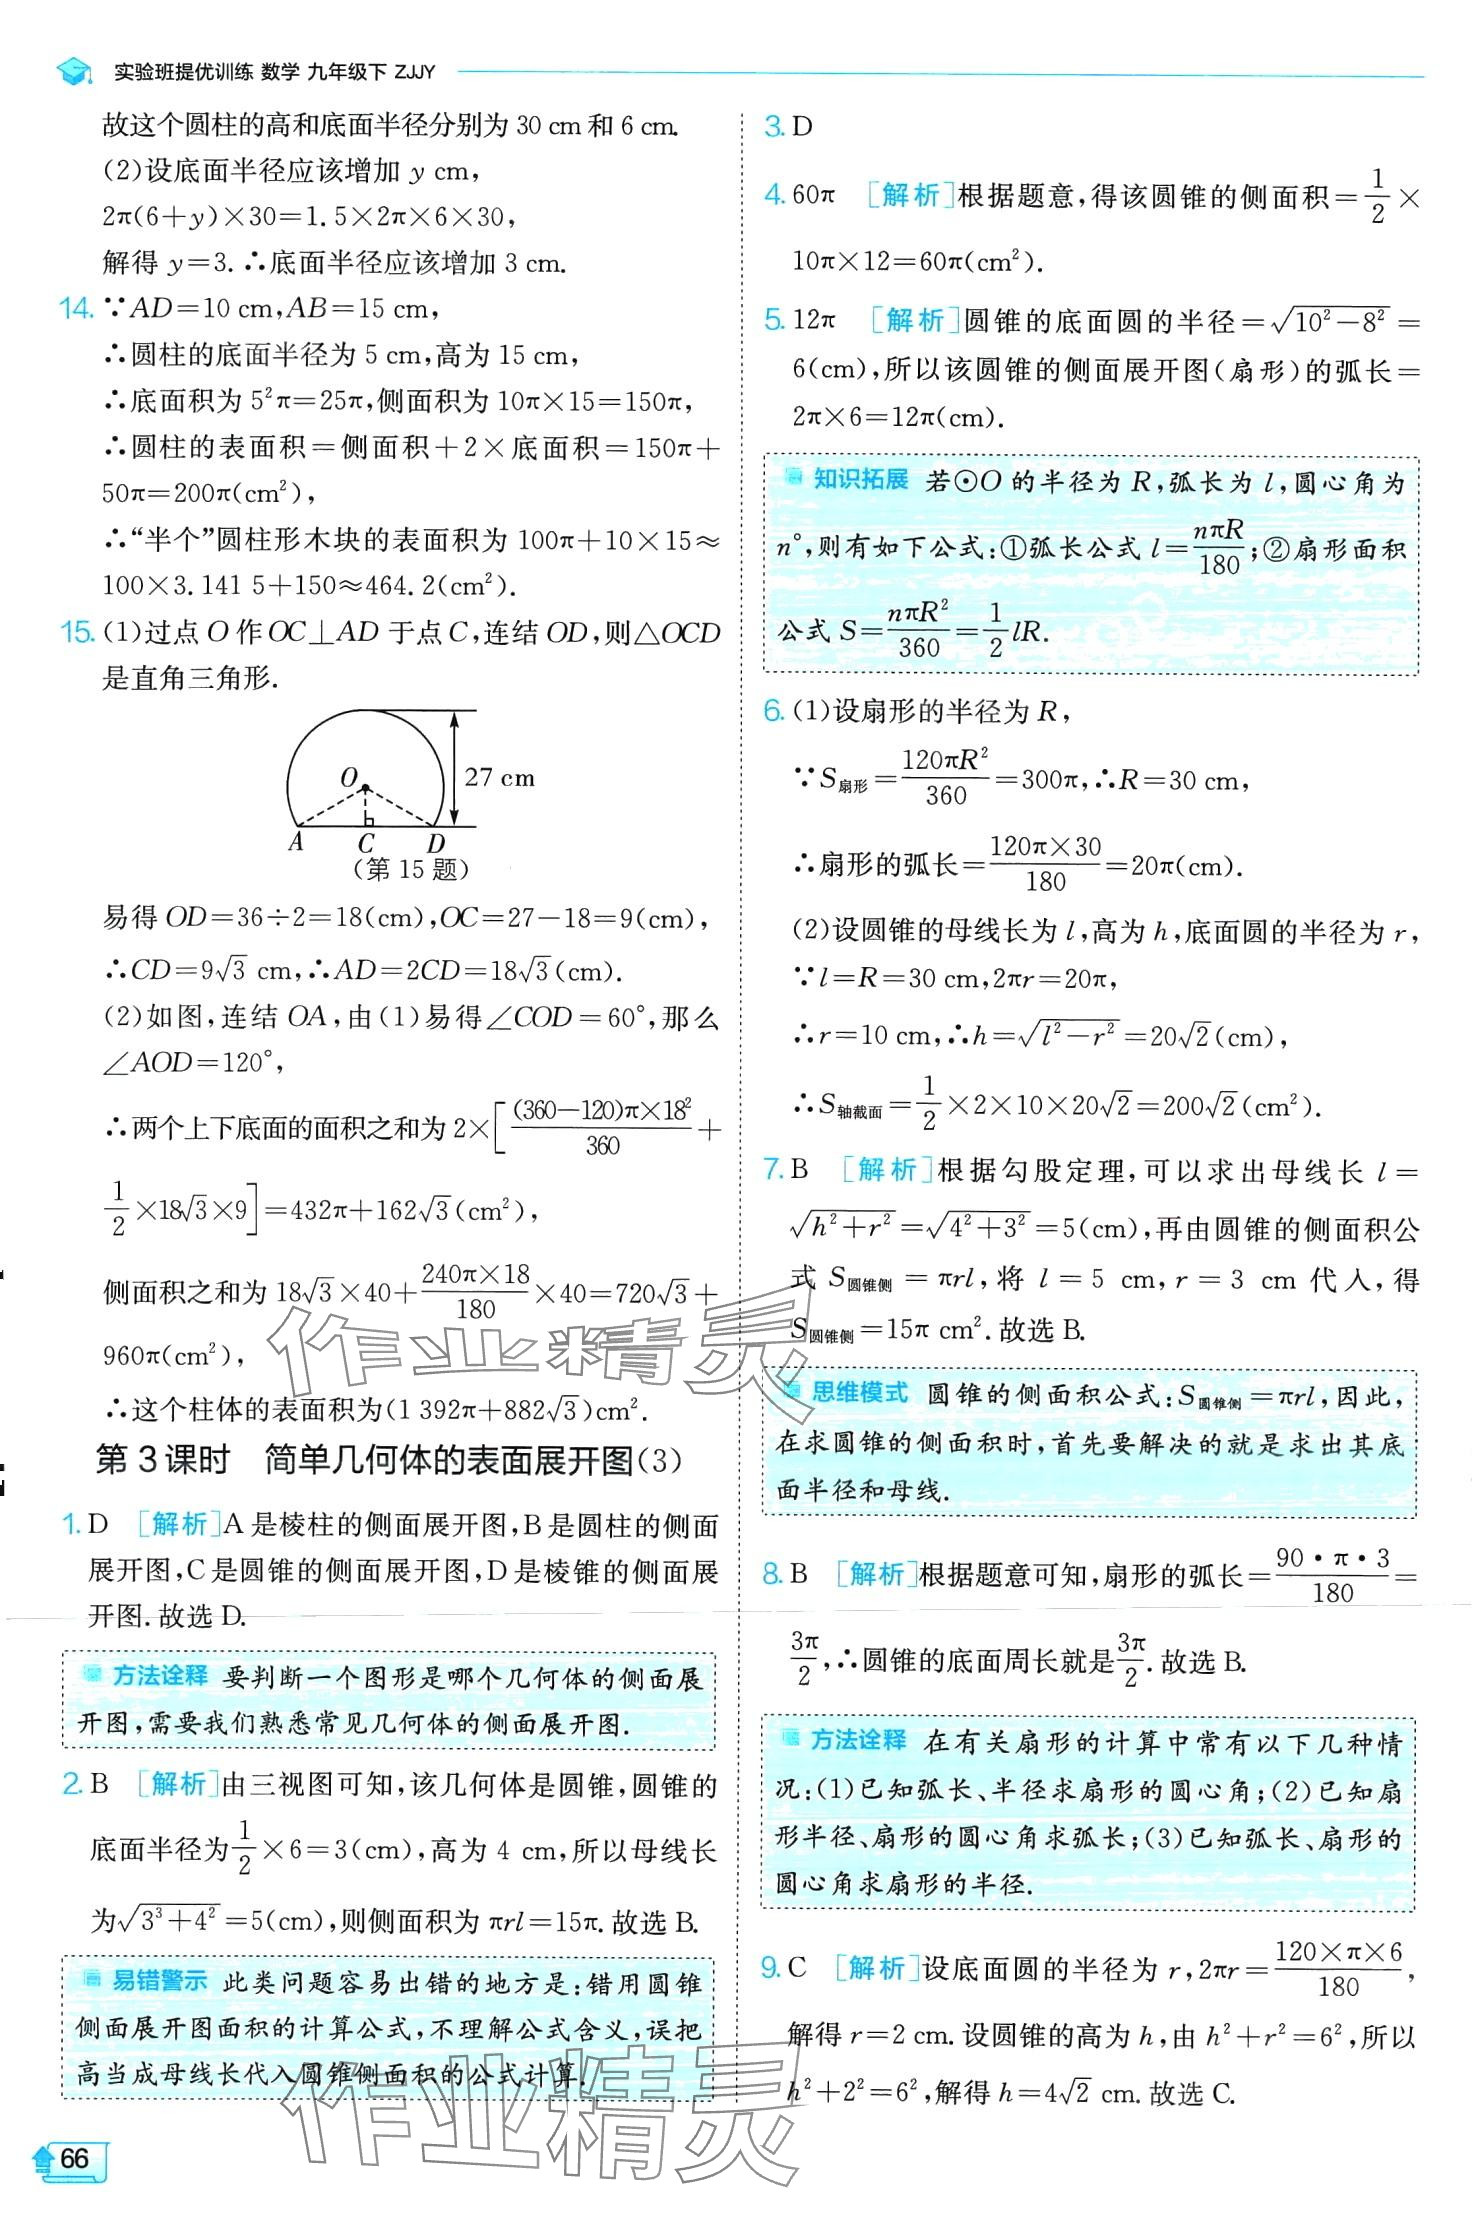 实验班提优训练 数学 九年级下 ZJJY
故这个圆柱的高和底面半径分别为 30 cm 和 6 cm.
(2)设底面半径应该增加 y cm,
2π(6+y)×30=1.5×2π×6×30,
解得 y=3.∴底面半径应该增加 3 cm.
14. ∵AD=10 cm,AB=15 cm,
∴圆柱的底面半径为 5 cm,高为 15 cm,
∴底面积为 5²π=25π,侧面积为 10π×15=150π,
∴圆柱的表面积=侧面积+2×底面积=150π+
50π=200π(cm²),
∴“半个”圆柱形木块的表面积为 100π+10×15≈
100×3.141 5+150≈464.2(cm²).
15. (1)过点 O 作 OC⊥AD 于点 C,连结 OD,则△OCD
是直角三角形.
O
27 cm
A C D
(第 15 题)
易得 OD=36÷2=18(cm),OC=27-18=9(cm),
∴CD=9√3 cm,∴AD=2CD=18√3(cm).
(2)如图,连结 OA,由(1)易得∠COD=60°,那么
∠AOD=120°,
∴两个上下底面的面积之和为 2×[(360-120)π×18²/360+
1/2×18√3×9]=432π+162√3(cm²),
侧面积之和为 18√3×40+240π×18/180×40=720√3+
960π(cm²),
∴这个柱体的表面积为(1 392π+882√3)cm².
第 3 课时 简单几何体的表面展开图(3)
1. D [解析]A 是棱柱的侧面展开图,B 是圆柱的侧面
展开图,C 是圆锥的侧面展开图,D 是棱锥的侧面展
开图.故选 D.
方法诠释 要判断一个图形是哪个几何体的侧面展
开图,需要我们熟悉常见几何体的侧面展开图.
2. B [解析]由三视图可知,该几何体是圆锥,圆锥的
底面半径为1/2×6=3(cm),高为 4 cm,所以母线长
为√(3³+4²)=5(cm),则侧面积为 πrl=15π.故选 B.
易错警示 此类问题容易出错的地方是:错用圆锥
侧面展开图面积的计算公式,不理解公式含义,误把
高当成母线长代入圆锥侧面积的公式计算.
66
3. D
4. 60π [解析]根据题意,得该圆锥的侧面积=1/2×
10π×12=60π(cm²).
5. 12π [解析]圆锥的底面圆的半径=√(10²-8²)=
6(cm),所以该圆锥的侧面展开图(扇形)的弧长=
2π×6=12π(cm).
知识拓展 若⊙O 的半径为 R,弧长为 l,圆心角为
n°,则有如下公式:①弧长公式 l=nπR/180;②扇形面积
公式 S=nπR²/360=1/2lR.
6. (1)设扇形的半径为 R,
∵S扇形=120πR²/360=300π,∴R=30 cm,
∴扇形的弧长=120π×30/180=20π(cm).
(2)设圆锥的母线长为 l,高为 h,底面圆的半径为 r,
∵l=R=30 cm,2πr=20π,
∴r=10 cm,∴h=√(l²-r²)=20√2(cm),
∴S轴截面=1/2×2×10×20√2=200√2(cm²).
7. B [解析]根据勾股定理,可以求出母线长 l=
√(h²+r²)=√(4²+3²)=5(cm),再由圆锥的侧面积公
式 S圆锥侧=πrl,将 l=5 cm,r=3 cm 代入,得
S圆锥侧=15π cm².故选 B.
思维模式 圆锥的侧面积公式:S圆锥侧=πrl,因此,
在求圆锥的侧面积时,首先要解决的就是求出其底
面半径和母线.
8. B [解析]根据题意可知,扇形的弧长=90·π·3/180=
3π/2,∴圆锥的底面周长就是3π/2.故选 B.
方法诠释 在有关扇形的计算中常有以下几种情
况:(1)已知弧长、半径求扇形的圆心角;(2)已知扇
形半径、扇形的圆心角求弧长;(3)已知弧长、扇形的
圆心角求扇形的半径.
9. C [解析]设底面圆的半径为 r,2πr=120×π×6/180,
解得 r=2 cm.设圆锥的高为 h,由 h²+r²=6²,所以
h²+2²=6²,解得 h=4√2 cm.故选 C.
作业精灵
作业精灵